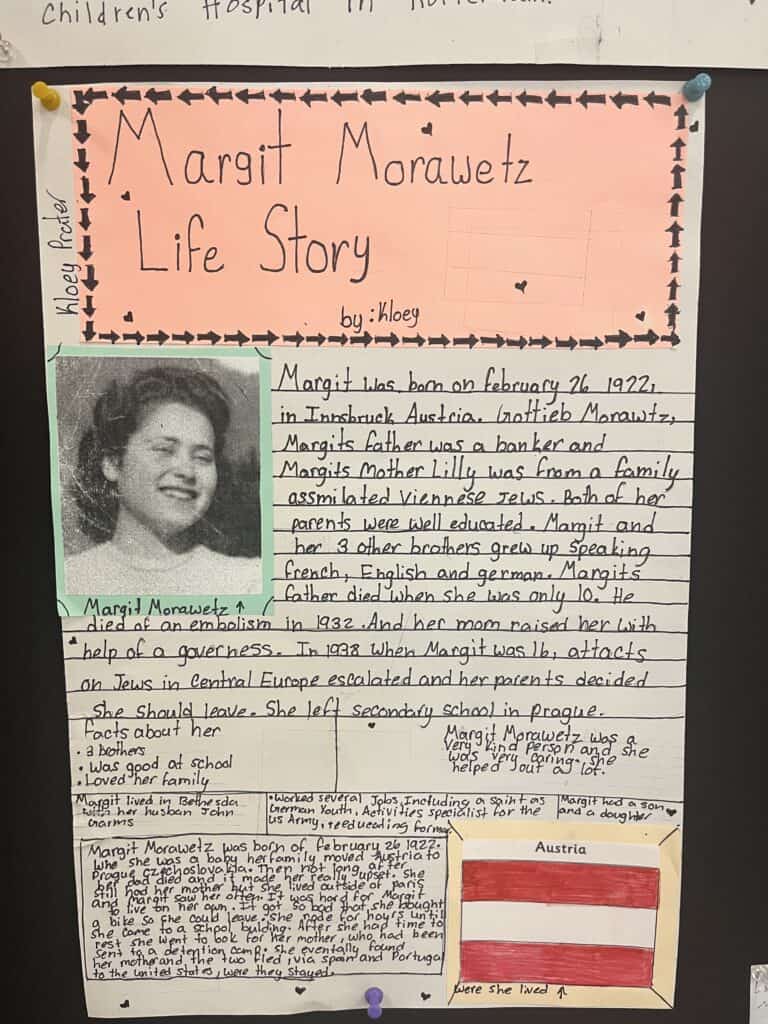 Children's Hospital in
Margit Morawetz
Life Story
by: Kloey
Kloey Prater
Margit was born on february 26 1922,
in Innsbruck Austria. Gottieb Morawtz,
Margits father was a banker and
Margits Mother Lilly was from a family
assmilated Viennese Jews. Both of her
parents were well educated. Margit and
her 3 other brothers grew up speaking
french, English and german. Margits
father died when she was only 10. He
died of an embolism in 1932. And her mom raised her with
help of a governess. In 1938 when Margit was 16, attacts
on Jews in Central Europe escalated and her parents decided
she should leave. She left secondary school in prague.
Margit Morawetz ↑
facts about her
• 3 brothers
• Was good at school
• Loved her family
Margit Morawetz was a
very kind person and she
was very caring. she
helped out a lot.
Margit lived in Bethesda
with her husban John
Garms
• Worked several Jobs, Including a saint as
German Youth, Activities specialist for the
us Army, reeducading former
Margit had a son
and a daughter
Margit Morawetz was born of february 26 1922.
she was a baby her family moved Austria to
prague czechoslovakia. Then not long after
her dad died and it made her really upset. she
still had her mother but she lived outside of paris
and Margit saw her often. It was hard for Margit
to live on her own. It got so bad that she bought
a bike so she could leave. she rode for hours until
she came to a school bulding. After she had time to
rest she went to look for her mother, who had been
sent to a detention camp. she eventally found
her mother and the two fled, via spain and Portugal
to the united states, were they stayed.
Austria
were she lived ↑